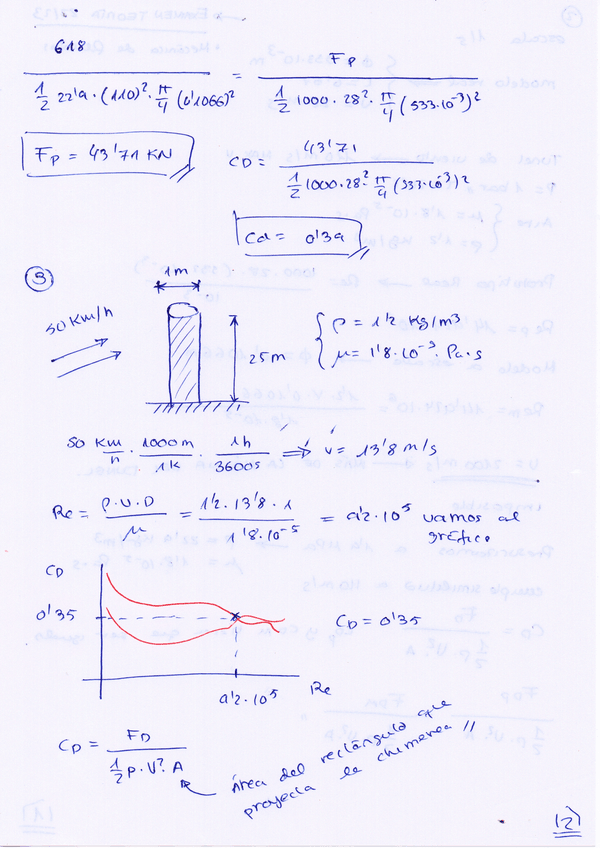 618 / (1/2 22'9 · (110)² · π/4 (0'1066)²) = Fp / (1/2 1000 · 28² · π/4 (533·10⁻³)²)
Fp = 43'71 KN
CD = 43'71 / (1/2 1000·28² · π/4 (533·10⁻³)²)
Cd = 0'39
3
1m
50 Km/h
25m
ρ = 1'2 Kg/m³
μ = 1'8·10⁻⁵ Pa·s
50 Km/h · 1000m/1K · 1h/3600s ⇒ v = 13'8 m/s
Re = ρ·v·D / μ = 1'2·13'8·1 / 1'8·10⁻⁵ = 9'2·10⁵ vamos al
gráfico
CD
0'35
CD = 0'35
9'2·10⁵
Re
CD = FD / (1/2 ρ·V²·A)
Área del rectángulo que
proyecta la chimenea //
(2)